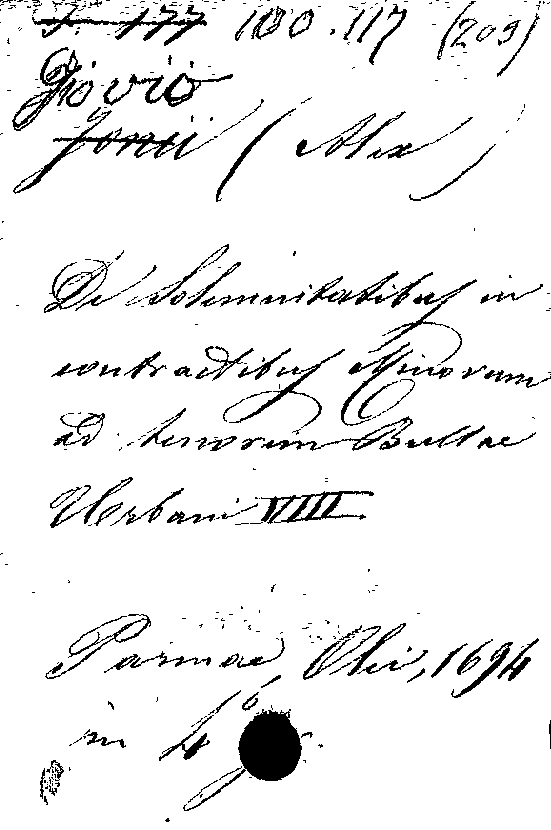 S. 177 100.117 (209)
Jovio
Jonii (Alex)
De Solemnitatibus in
contractibus Minorum
ad tenorem Bullae
Urbani VIII.
Parmae, Olei, 1694
in 4°